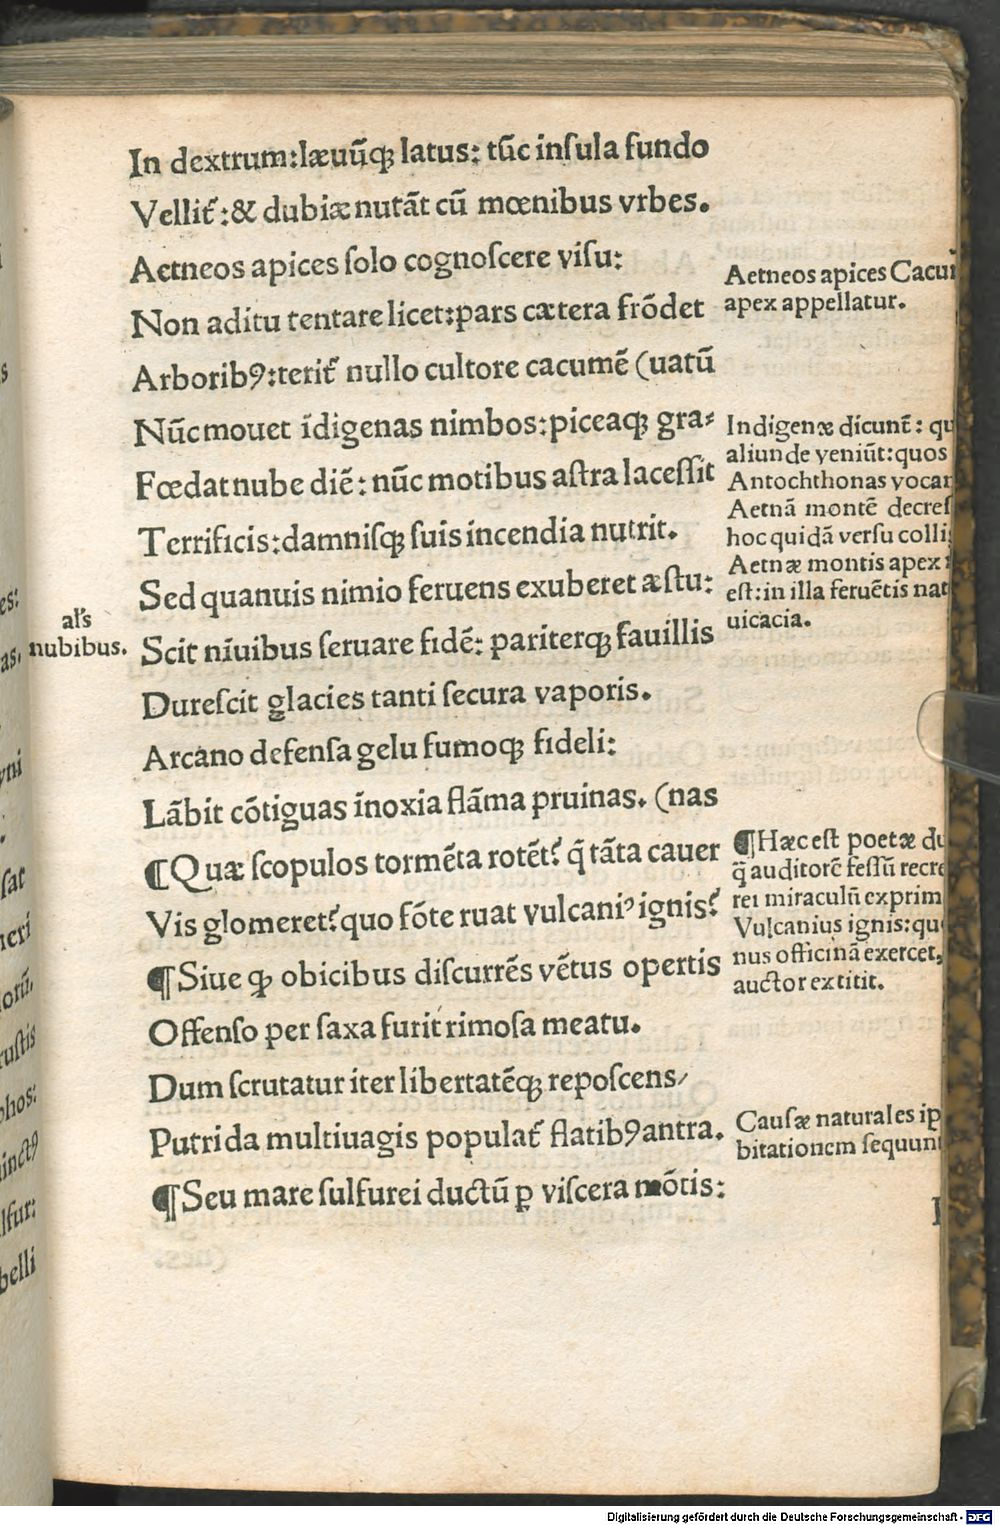 In dextrum:læuũqꝫ latus: tũc inſula fundo
Vellit᷑:& dubiæ nutãt cũ mœnibus vrbes.
Aetneos apices ſolo cognoſcere viſu:
Non aditu tentare licet:pars cætera frõdet
Arboribꝰ:terit᷑ nullo cultore cacumẽ (uatũ
Nũc mouet ĩdigenas nimbos:piceaqꝫ gra⸗
Fœdat nube diẽ: nũc motibus aſtra laceſſit
Terrificis:damniſqꝫ ſuis incendia nutrit.
Sed quanuis nimio feruens exuberet æſtu:
Scit nĩuibus ſeruare fidẽ: pariterqꝫ fauillis
Dureſcit glacies tanti ſecura vaporis.
Arcano defenſa gelu fumoqꝫ fideli:
Lãbit cõtiguas ĩnoxia flãma pruinas. (nas
¶Quæ ſcopulos tormẽta rotẽt? q̃ tãta cauer
Vis glomeret?quo fõte ruat vulcaniꝰ ignis?
¶Siue ꝙ obicibus diſcurrẽs vẽtus opertis
Offenſo per ſaxa furit rimoſa meatu.
Dum ſcrutatur iter libertatẽqꝫ repoſcens/
Putrida multiuagis populat᷑ flatibꝰantra.
¶Seu mare ſulfurei ductũ ꝑ viſcera mõtis:
al's
nubibus.
Aetneos apices
apex appellatur.
Indigenæ dicunt᷑:
aliunde veniũt:quos
Antochthonas
Aetnã montẽ
hoc quidã verſu
Aetnæ montis apex
eſt:in illa feruẽtis
uicacia.
¶Hæc eſt poetæ
q̃ auditorẽ feſſũ
rei miraculũ
Vulcanius ignis:
nus officinã exercet,
auctor extitit.
Cauſæ naturales
bitationem